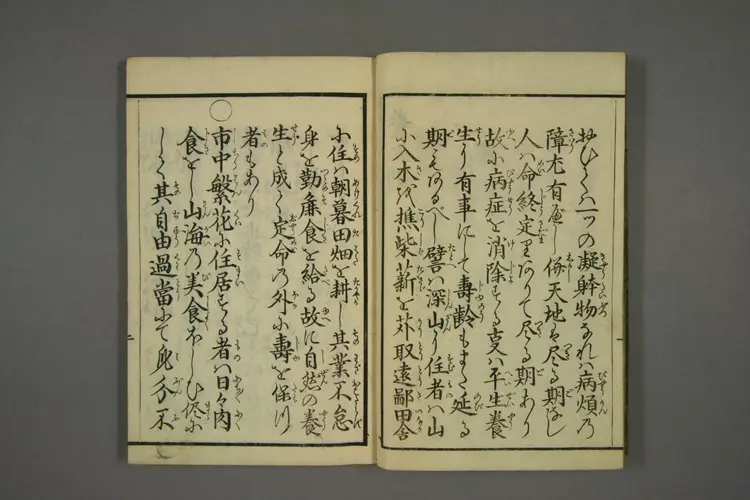 おひくハ一ツの凝躰物なれハ病煩乃
障尤有べし併天地ハ尽る期なし
人ハ命終定里ありて尽る期あり
故小病症を消除する支ハ平生養
生り有事にて壽齢もまた延る
期もあるべし譬ハ深山り住者ハ山
小入木を樵柴薪を苅取遠鄙田舎
小住ハ朝暮田畑を耕し其業不怠
身を勤麁食を給る故に自然の養
生と成して定命乃外小壽を保つ
者もあり
○
市中繁花小住居する者ハ日々肉
食をし山海乃美食ほしひ侭小
して其自由過當にて身分不